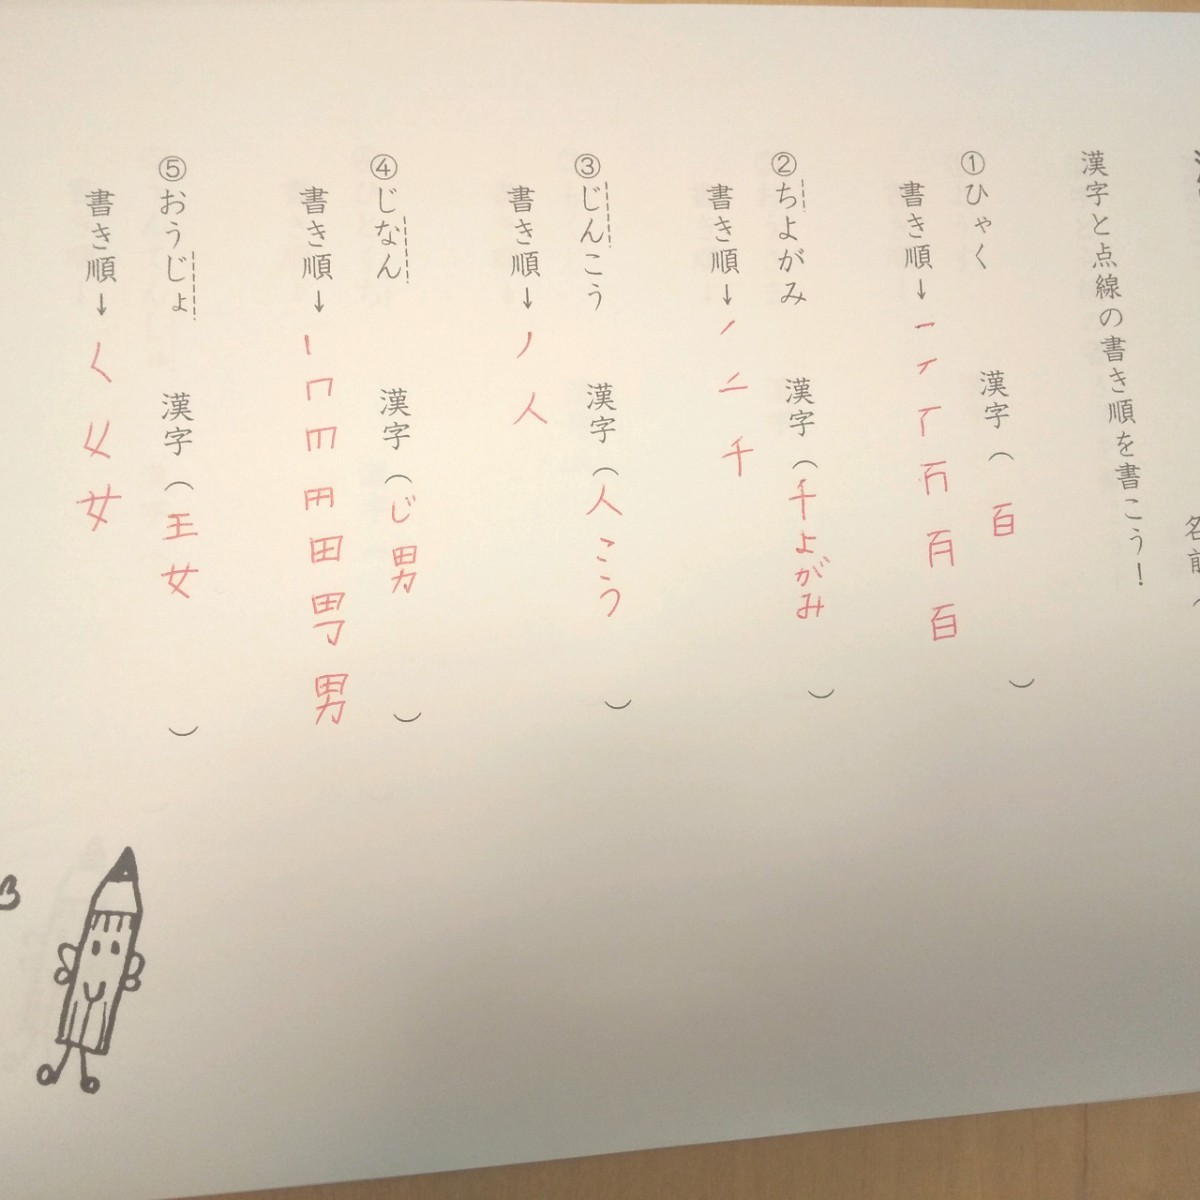 名前（
漢字と点線の書き順を書こう！
①ひゃく　漢字（百）
書き順→一 丆 百
②ちよがみ　漢字（千よがみ）
書き順→ノ 二 千
③じんこう　漢字（人こう）
書き順→ノ 人
④じなん　漢字（じ男）
書き順→丨 冂 田 男
⑤おうじょ　漢字（王女）
書き順→く 女